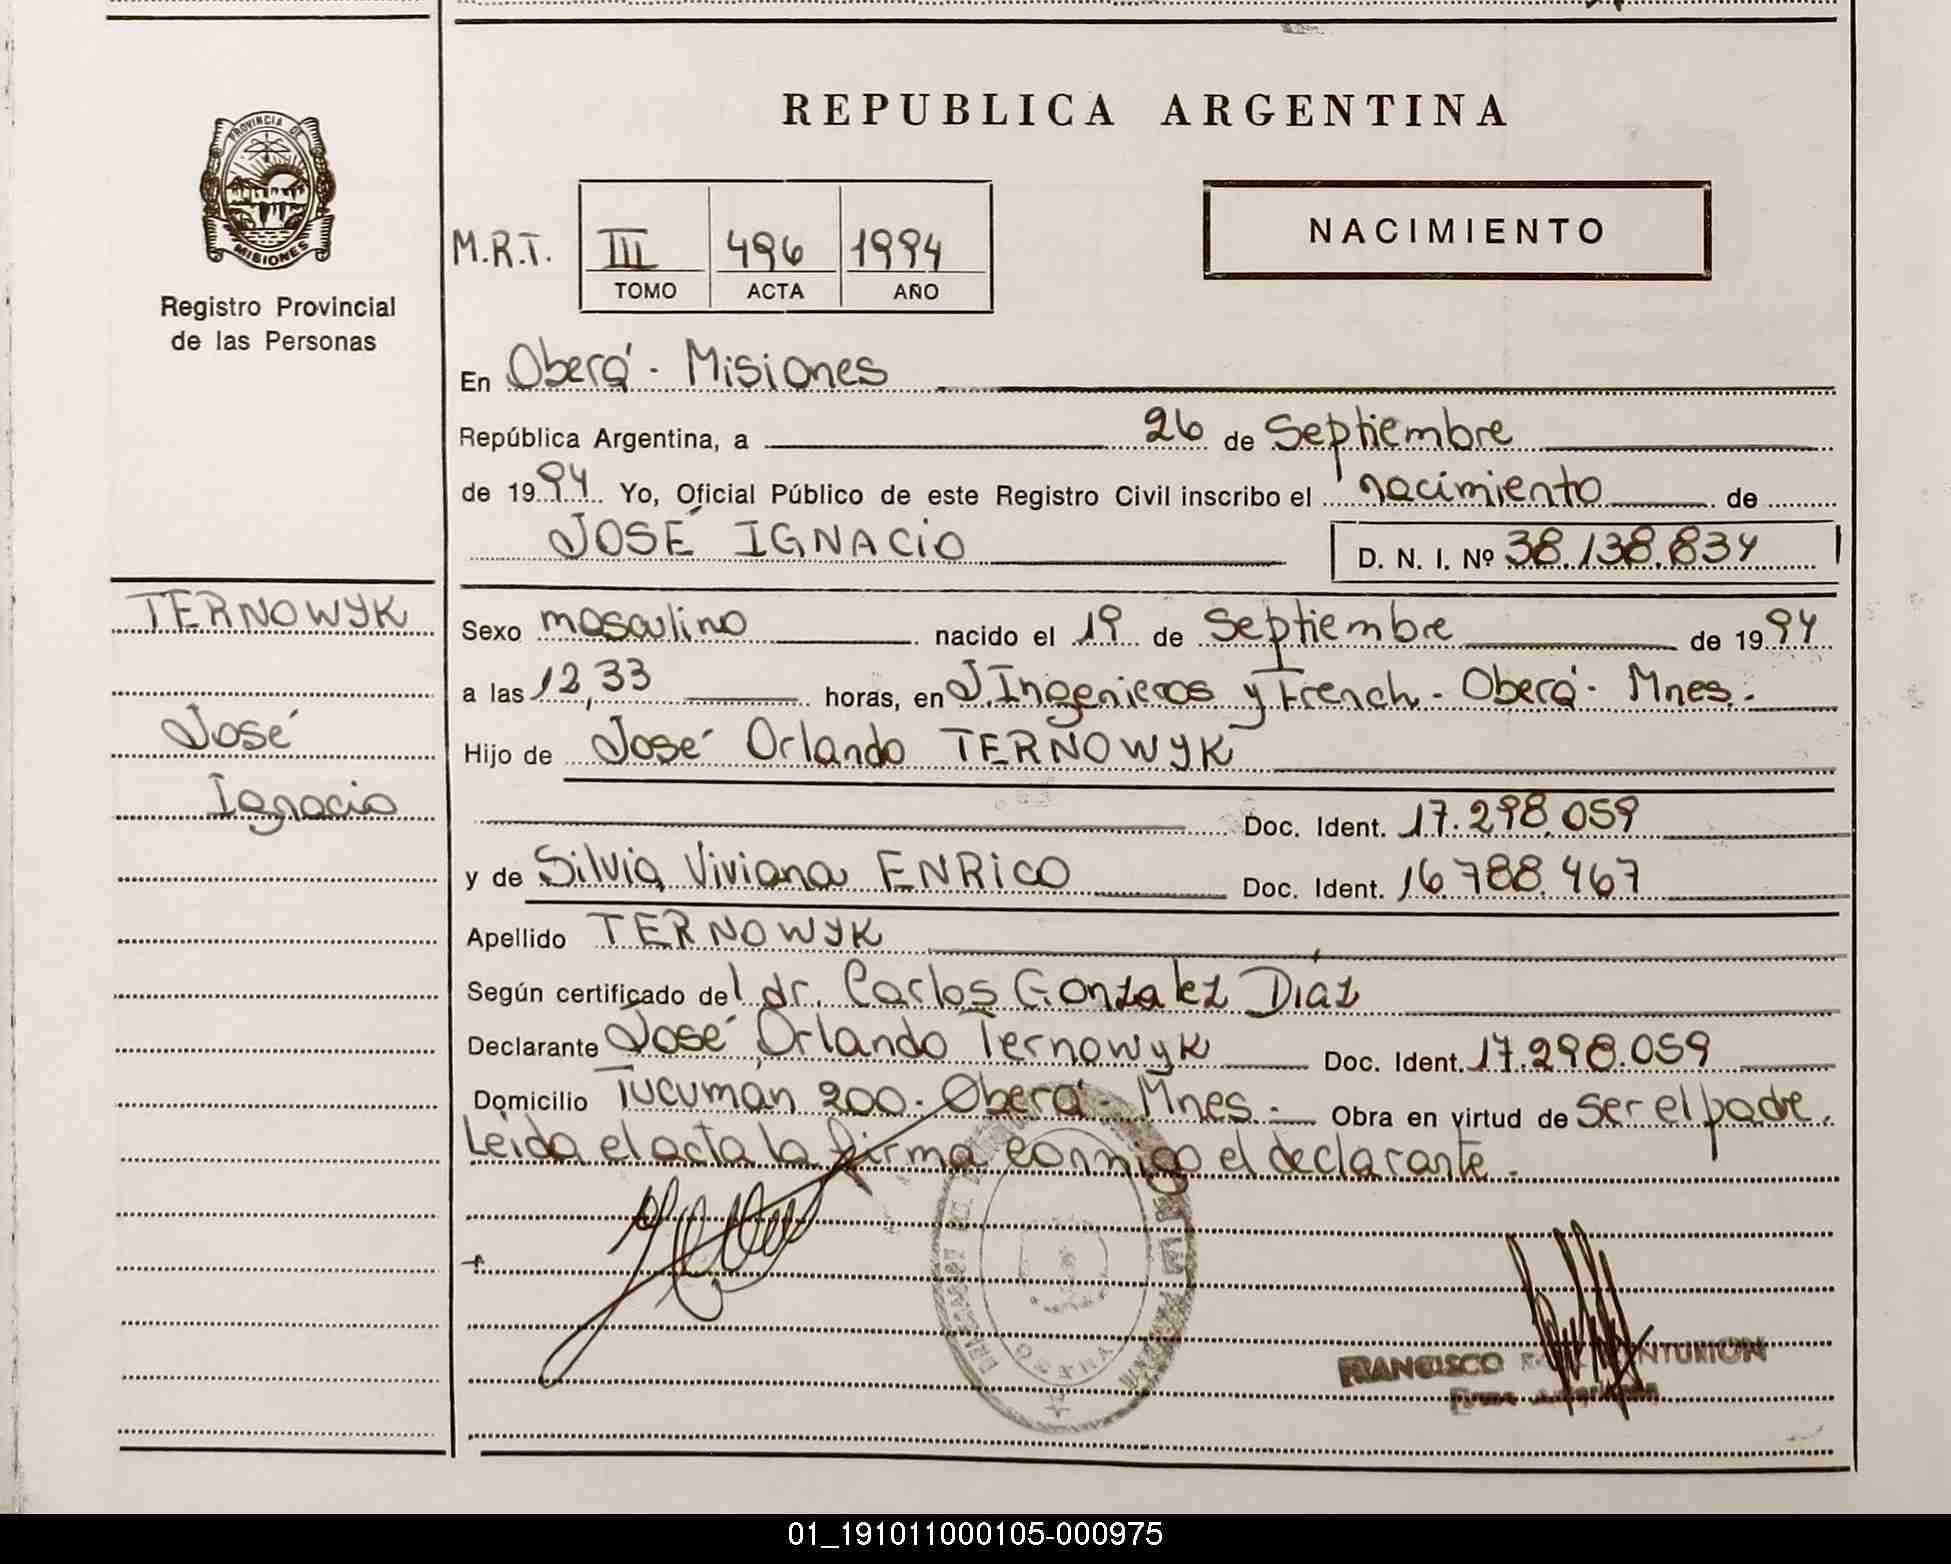 REPUBLICA ARGENTINA
PROVINCIA DE
MISIONES
Registro Provincial
de las Personas
M.R.T. III 496 1994
TOMO ACTA AÑO
NACIMIENTO
En Oberá - Misiones
República Argentina, a 26 de Septiembre
de 1994. Yo, Oficial Público de este Registro Civil inscribo el nacimiento de
JOSÉ IGNACIO D. N. I. Nº 38.138.834
TERNOWYK
José
Ignacio
Sexo masculino nacido el 19 de Septiembre de 1994
a las 12,33 horas, en J. Ingenieros y French - Oberá - Mnes.
Hijo de José Orlando TERNOWYK
Doc. Ident. 17.298.059
y de Silvia Viviana ENRICO Doc. Ident. 16.788.467
Apellido TERNOWYK
Según certificado del dr. Carlos Gonzalez Díaz
Declarante José Orlando Ternowyk Doc. Ident. 17.298.059
Domicilio Tucumán 200 - Oberá - Mnes. - Obra en virtud de ser el padre.
Leída el acta la firma conmigo el declarante.
OBERA
FRANCISCO
01_191011000105-000975